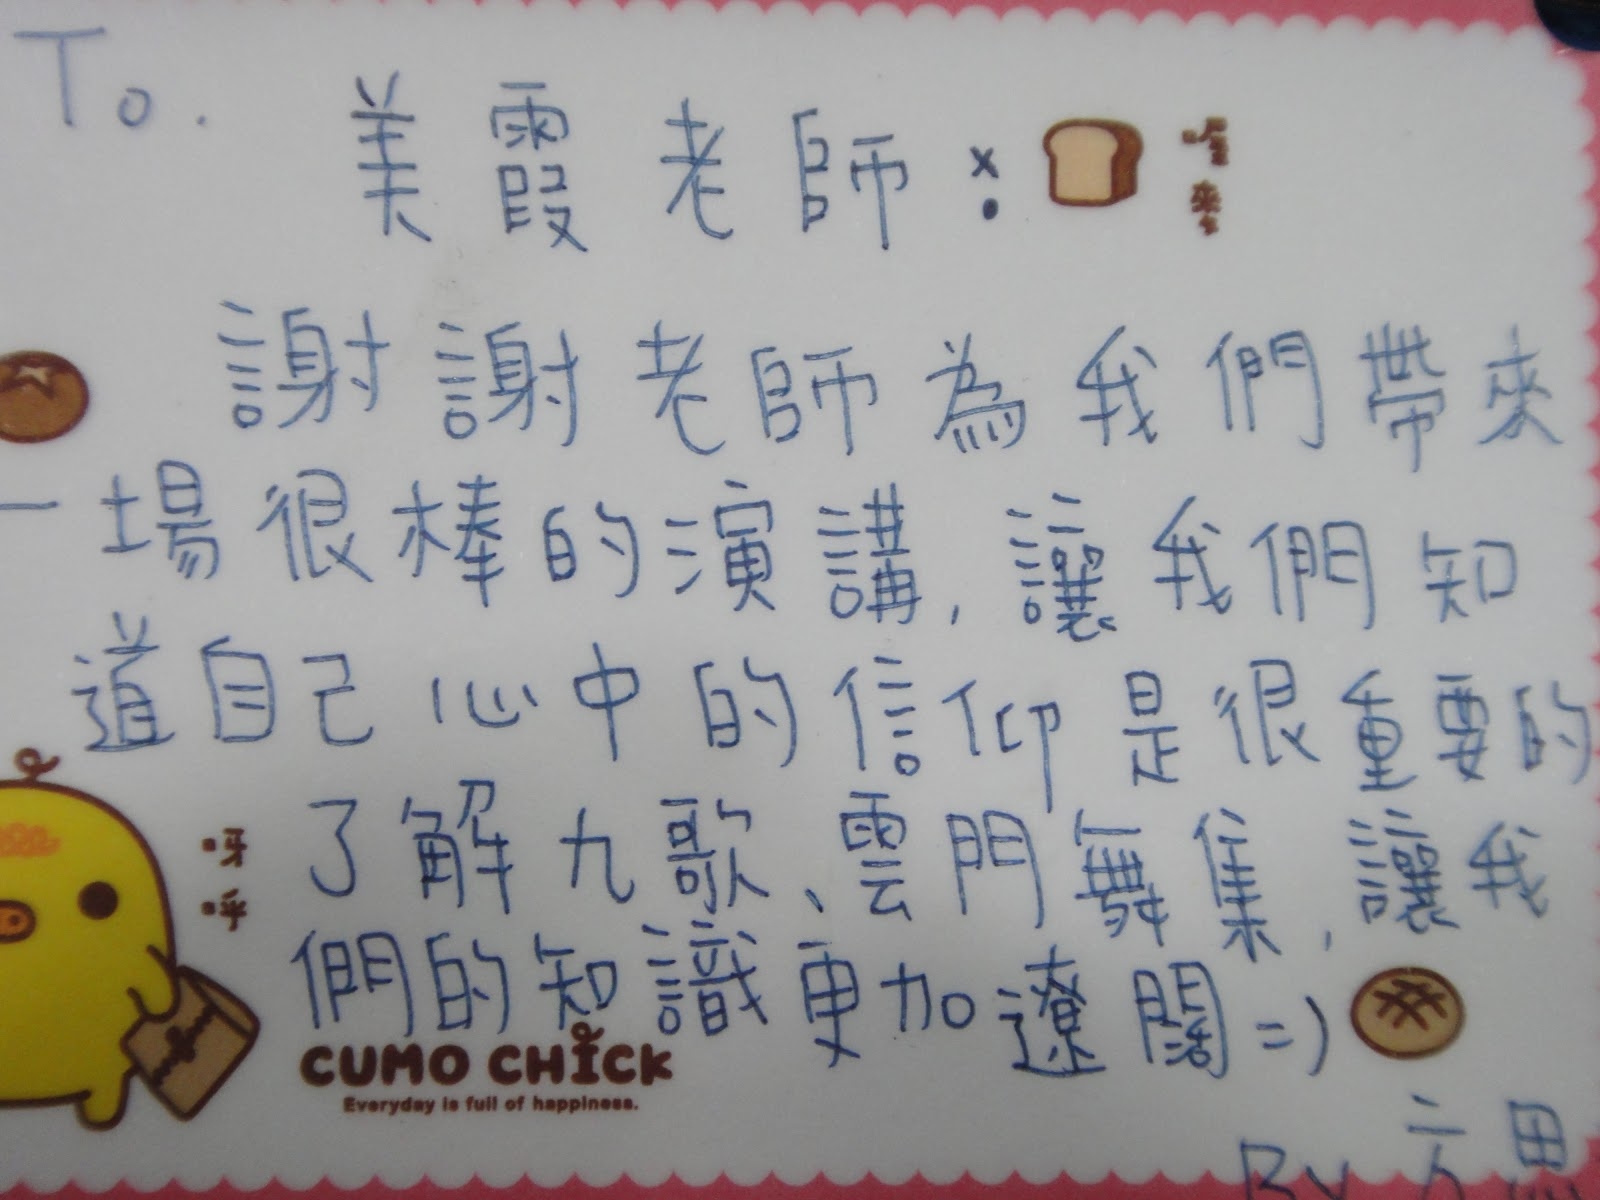 To.
美霞老師:
謝謝老師為我們帶來
一場很棒的演講,讓我們知
道自己心中的信仰是很重要的
了解九歌、雲門舞集,讓我
們的知識更加遼闊=)
呀
呼
CUMO CHICK
Everyday is full of happiness.
By 方思